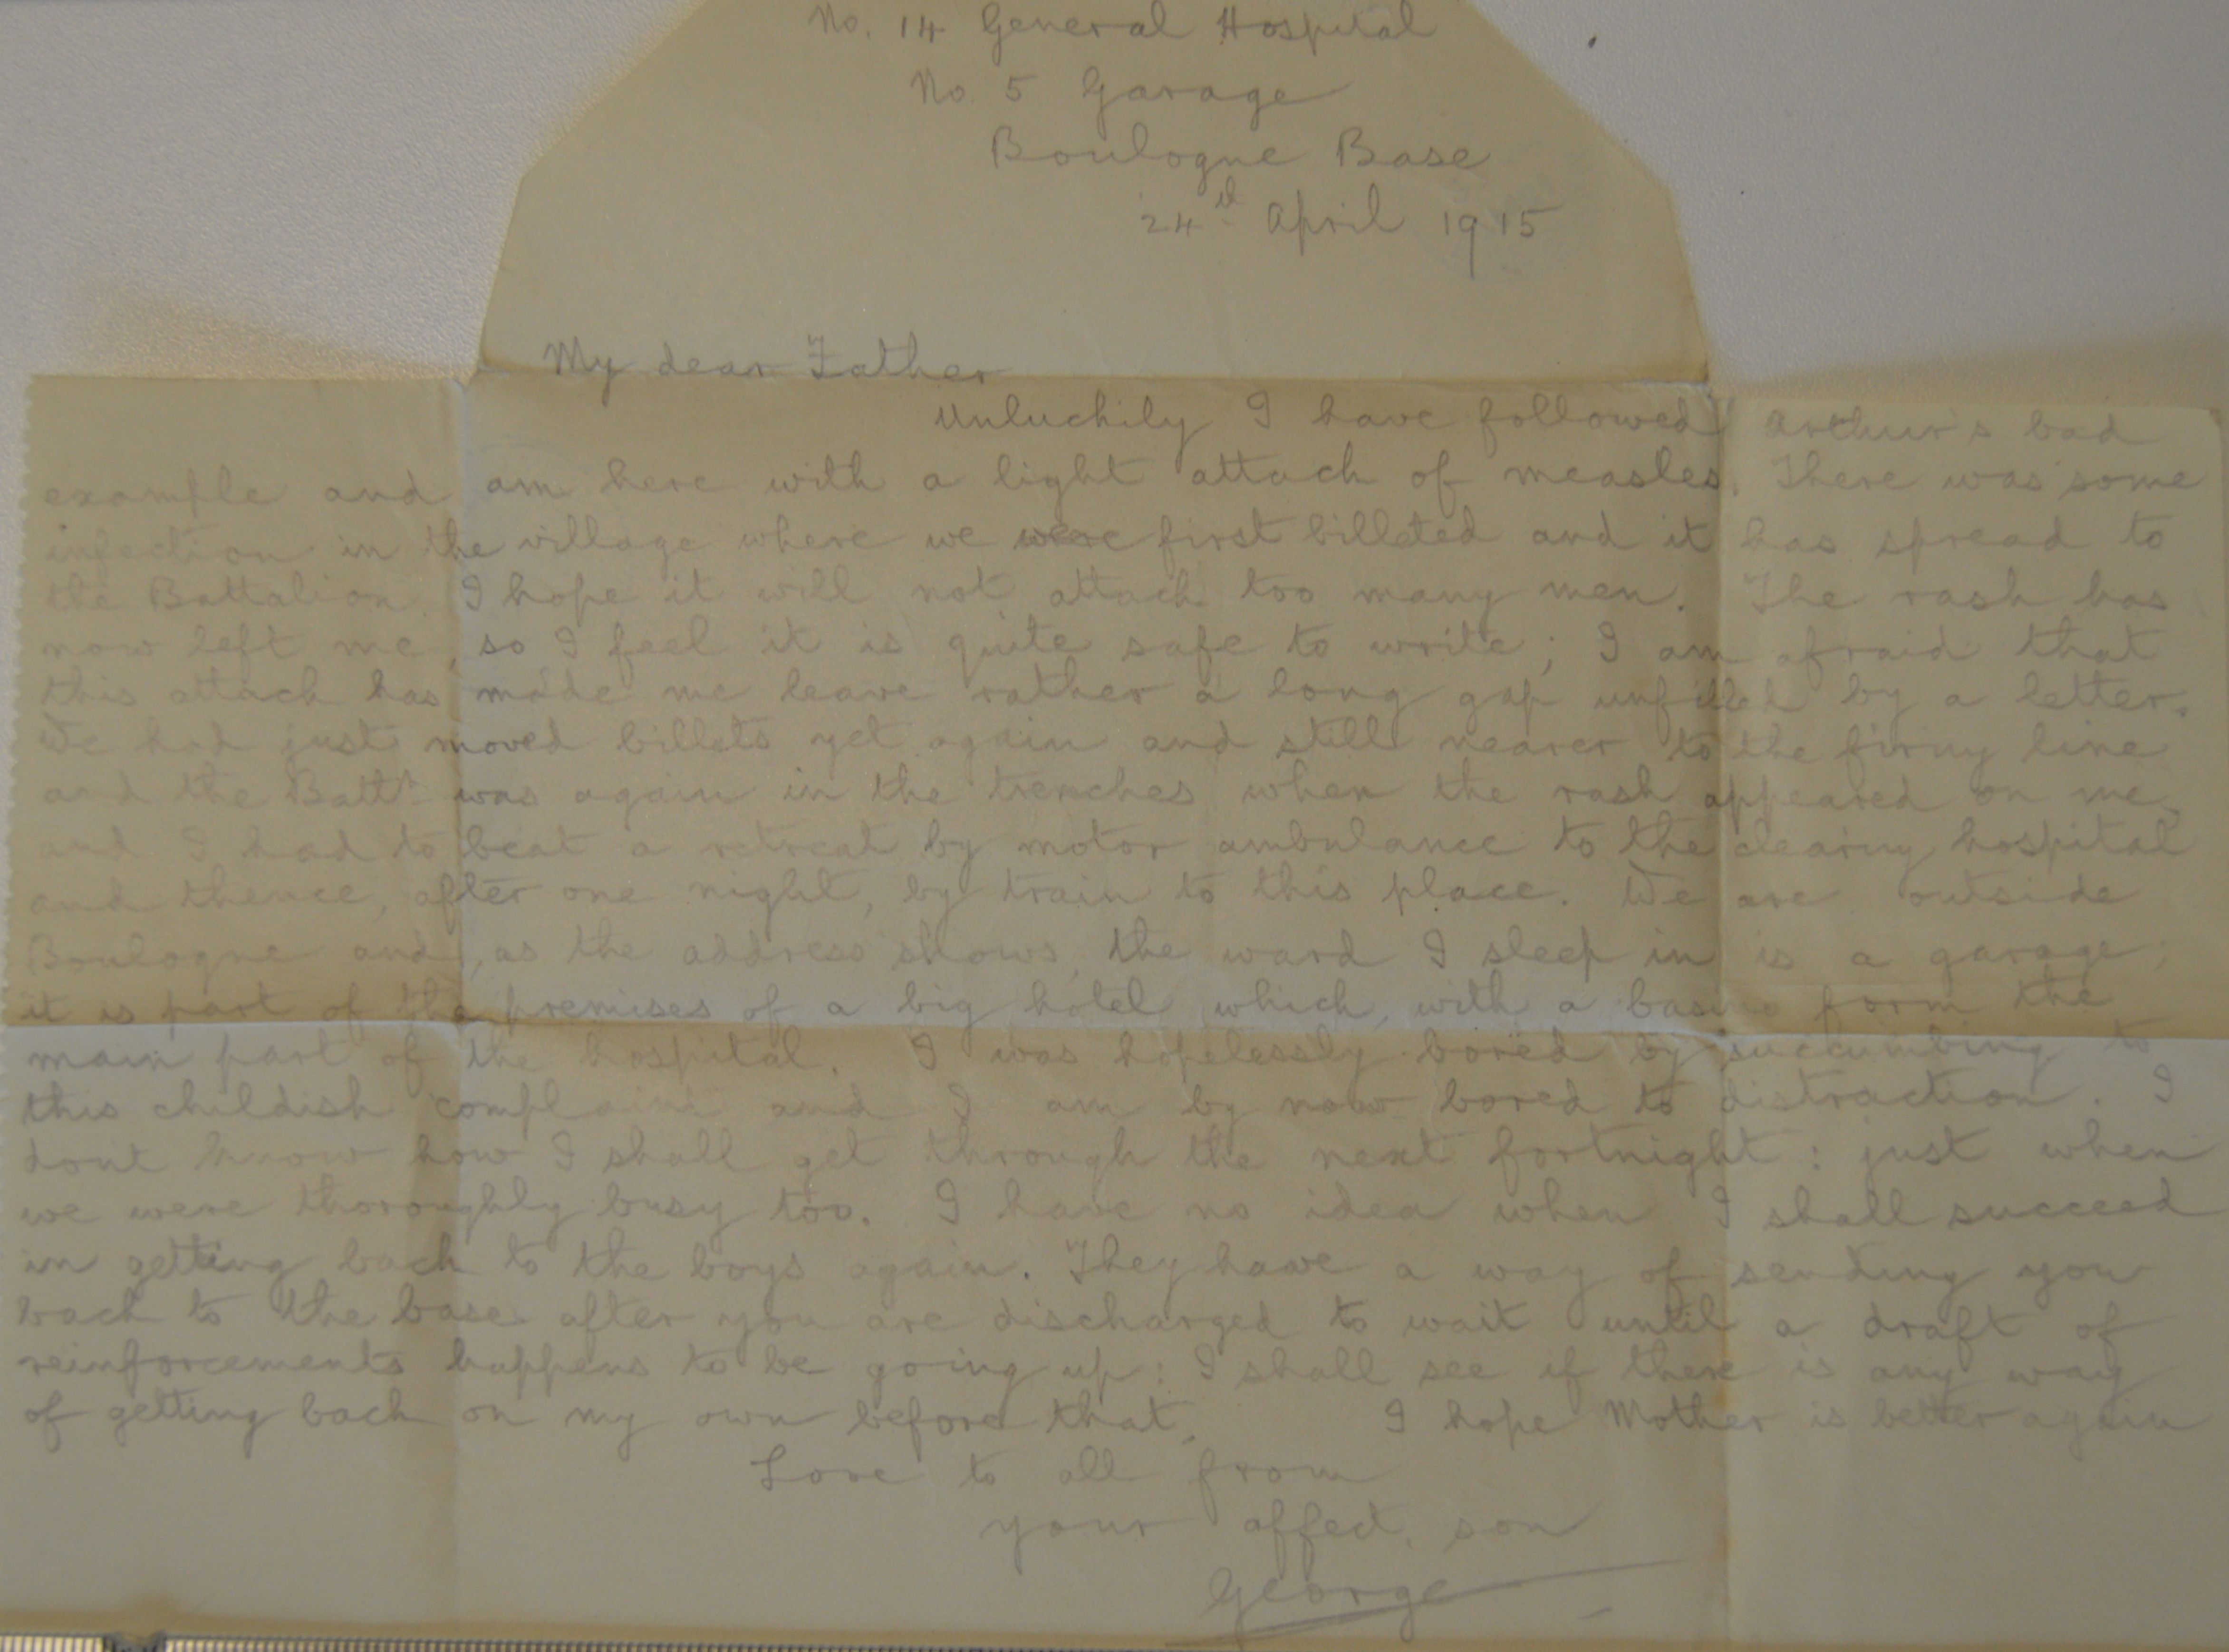 No. 14 General Hospital
No. 5 Garage
Boulogne Base
24th April 1915
My dear Father
Unluckily I have followed Arthur's bad
example and am here with a light attack of measles. There was some
infection in the village where we were first billeted and it has spread to
the Battalion. I hope it will not attack too many men. The rash has
now left me, so I feel it is quite safe to write; I am afraid that
this attack has made me leave rather a long gap unfilled by a letter.
We had just moved billets yet again and still nearer to the firing line
and the Battn was again in the trenches when the rash appeared on me,
and I had to beat a retreat by motor ambulance to the clearing hospital
and thence, after one night, by train to this place. We are outside
Boulogne and, as the address shows, the ward I sleep in is a garage;
it is part of the premises of a big hotel which, with a form the
main part of the hospital. I was hopelessly bored by succumbing to
this childish complaint and I am by now bored to distraction. I
dont know how I shall get through the next fortnight: just when
we were thoroughly busy too. I have no idea when I shall succeed
in getting back to the boys again. They have a way of sending you
back to the base after you are discharged to wait until a draft of
reinforcements happens to be going up: I shall see if there is any way
of getting back on my own before that. I hope Mother is better again
Love to all from
your affect. son
George